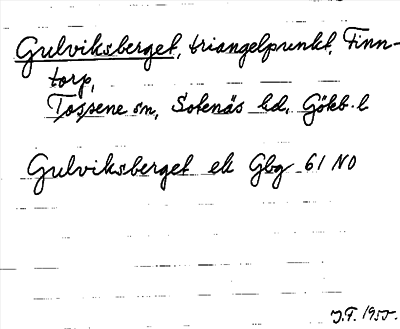 Gulviksberget, triangelpunkt, Finn-
torp,
Tossene sn, Sotenäs hd, Göteb. l
Gulviksberget ek Gbg 61 NO
J.F. 1955.